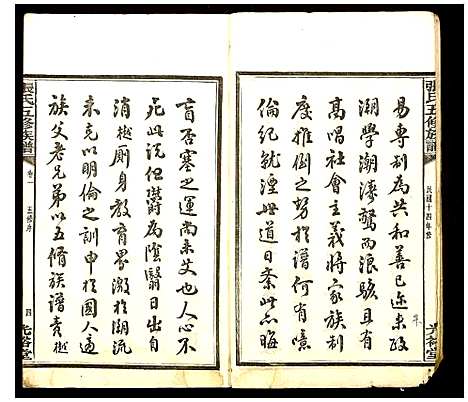 張氏五修族譜
民國十四年修
光裕堂
易專制為共和善已迩來政
潮學潮濤驚而浪駭且有
高唱社會主義將家族制
度推倒之勢於譜何有噫
倫紀就湮世道日紊此亦晦
盲否塞之運尚未艾也人心不
死此説但爝為陰翳日出自
消樾厠身教育界激於潮流
未克以明倫之訓申於國人適
族父老兄弟以五脩族譜責樾
張氏五修族譜
卷一
五修序
四
光裕堂